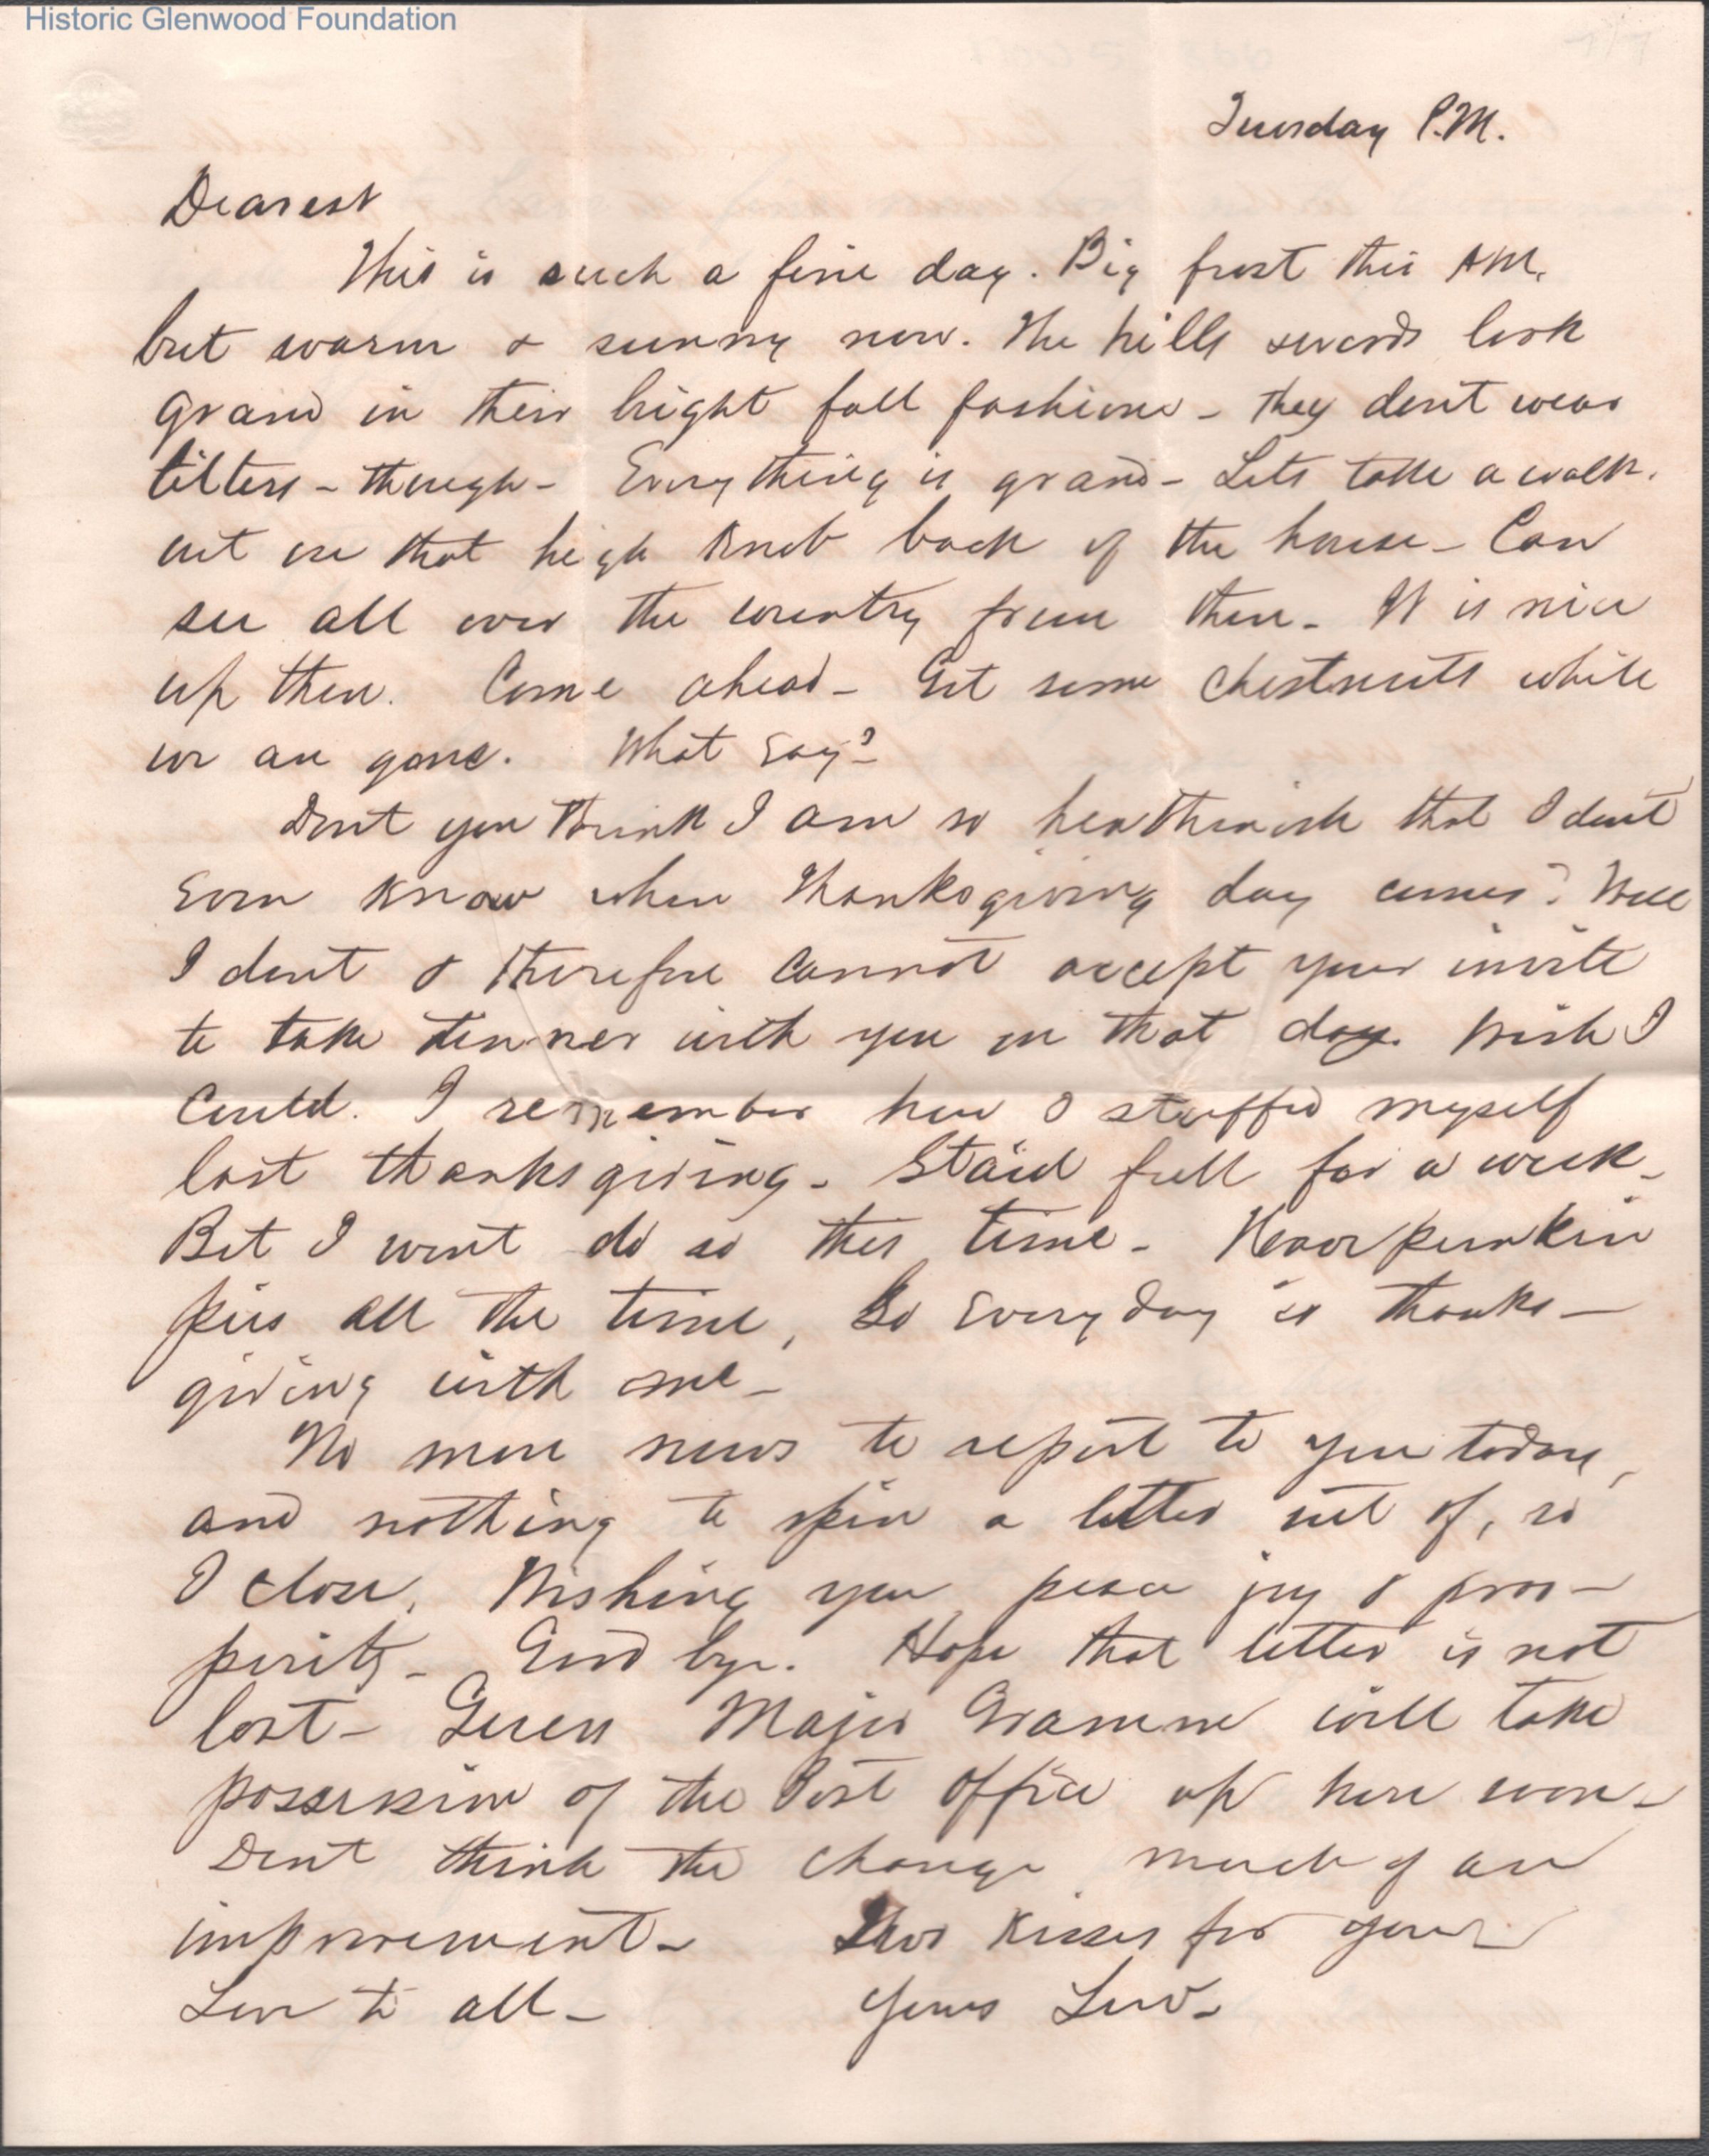 Historic Glenwood Foundation
Tuesday P.M.
Dearest
This is such a fine day. Big frost this AM.
but warm & sunny now. The hills look
grand in their bright fall fashions - they dont wear
tilters - though - Everything is grand - Lets take a walk.
out on that high Knob back of the house - Can
see all over the country from there - It is nice
up there. Come ahead - Get some chestnuts while
we are gone. What say?
Dont you think I am so heathenish that I dont
Even know when Thanksgiving day comes? Well
I dont & therefore cannot accept your invite
to take dinner with you on that day. Wish I
Could. I remember how I stuffed myself
last thanksgiving - Staid full for a week -
But I wont do so this time - Have punkin
pies all the time, So Every day is thanks-
giving with me -
No more news to report to you today,
and nothing to spin a letter out of, so
I close. Wishing you peace joy & pros-
perity - Good bye. Hope that letter is not
lost - Guess Major will take
possession of the Post Office up here soon -
Dont think the change much of an
improvement - Kisses for you
Love to all - Yours